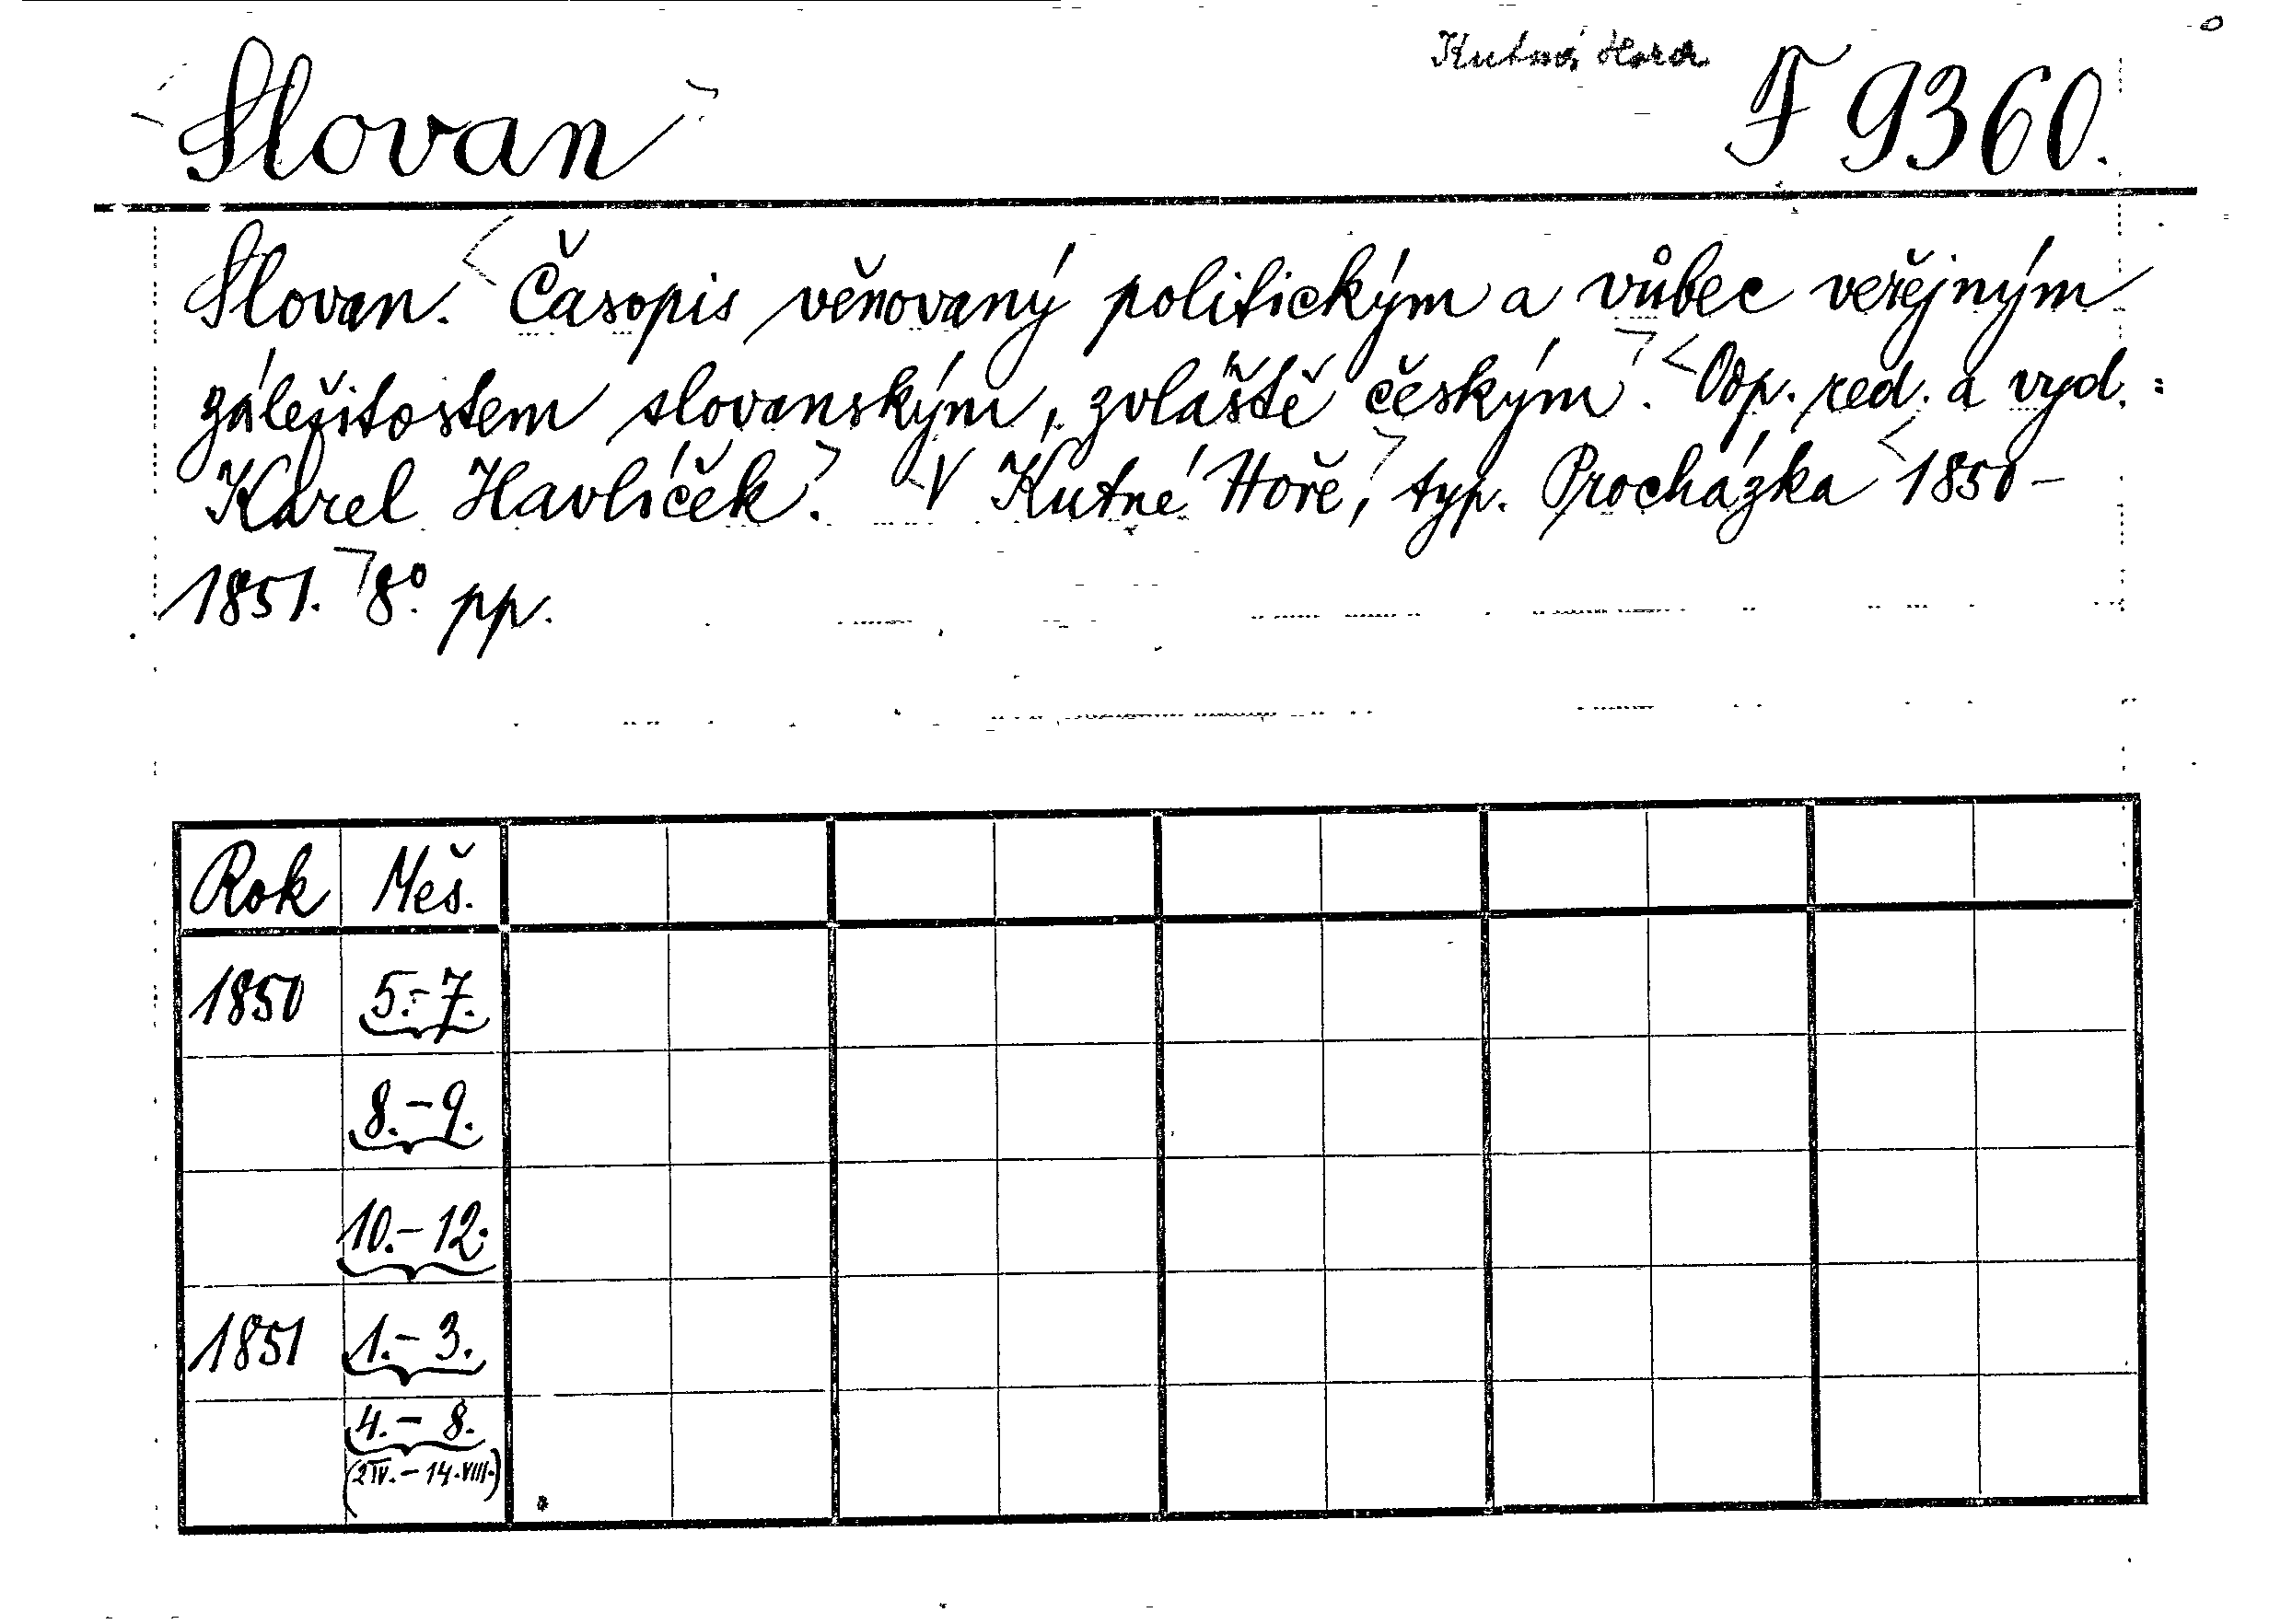 Kutná Hora
Slovan F 9360.
Slovan. Časopis věnovaný politickým a vůbec veřejným
záležitostem slovanským, zvláště českým. Odp. red. a vyd.:
Karel Havlíček. V Kutné Hoře, typ. Procházka 1850-
1851. 8° pp.
Rok Měs.
1850 5.-7.
8.-9.
10.-12.
1851 1.-3.
4.-8.
(2 IV.-14. VIII.)